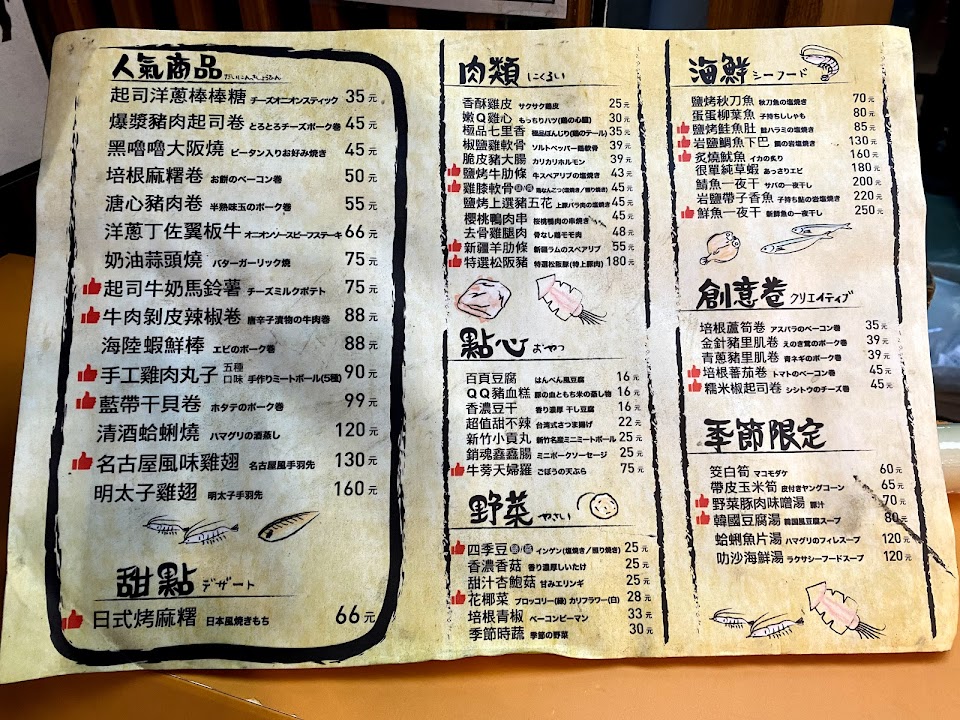 人氣商品
起司洋蔥棒棒糖 チーズオニオンスティック 35元
爆漿豬肉起司卷 とろとろチーズポーク巻 45元
黑嚕嚕大阪燒 ピータン入りお好み焼き 45元
培根麻糬卷 お餅のベーコン巻 50元
溏心豬肉卷 半熟味玉のポーク巻 55元
洋蔥丁佐翼板牛 オニオンソースビーフステーキ 66元
奶油蒜頭燒 バターガーリック焼 75元
起司牛奶馬鈴薯 チーズミルクポテト 75元
牛肉剝皮辣椒卷 唐辛子漬物の牛肉巻 88元
海陸蝦鮮棒 エビのポーク巻 88元
手工雞肉丸子 五種口味 手作りミートボール(5種) 90元
藍帶干貝卷 ホタテのポーク巻 99元
清酒蛤蜊燒 ハマグリの酒蒸し 120元
名古屋風味雞翅 名古屋風手羽先 130元
明太子雞翅 明太子手羽先 160元
甜點 デザート
日式烤麻糬 日本風焼きもち 66元
肉類 にくるい
香酥雞皮 サクサク鶏皮 25元
嫩Q雞心 もっちりハツ(鶏の心臓) 30元
極品七里香 極品ぼんじり(鶏のテール) 35元
椒鹽雞軟骨 ソルトペッパー鶏軟骨 39元
脆皮豬大腸 カリカリホルモン 39元
鹽烤牛肋條 牛スペアリブの塩焼き 43元
雞膝軟骨 鶏なんこつ(塩焼き/照り焼き) 45元
鹽烤上選豬五花 上豚バラ肉の塩焼き 45元
櫻桃鴨肉串 桜桃鴨肉の串焼き 45元
去骨雞腿肉 骨なし鶏モモ肉 48元
新疆羊肋條 新疆ラムのスペアリブ 55元
特選松阪豬 特選松阪豚(特上豚肉) 180元
點心 おやつ
百頁豆腐 はんぺん風豆腐 16元
QQ豬血糕 豚の血ともち米の蒸し物 16元
香濃豆干 香り濃厚 干し豆腐 16元
超值甜不辣 台湾式さつま揚げ 22元
新竹小貢丸 新竹名産ミニミートボール 25元
銷魂鑫鑫腸 ミニポークソーセージ 25元
牛蒡天婦羅 ごぼうの天ぷら 75元
野菜 やさい
四季豆 インゲン(塩焼き/照り焼き) 25元
香濃香菇 香り濃厚しいたけ 25元
甜汁杏鮑菇 甘みエリンギ 25元
花椰菜 ブロッコリー(緑) カリフラワー(白) 28元
培根青椒 ベーコンピーマン 33元
季節時蔬 季節の野菜 30元
海鮮 シーフード
鹽烤秋刀魚 秋刀魚の塩焼き 70元
蛋蛋柳葉魚 子持ちししゃも 80元
鹽烤鮭魚肚 鮭ハラミの塩焼き 85元
岩鹽鯛魚下巴 鯛の岩塩焼き 130元
炙燒魷魚 イカの炙り 160元
很單純草蝦 あっさりエビ 180元
鯖魚一夜干 サバの一夜干し 200元
岩鹽帶子香魚 子持ち鮎の岩塩焼き 220元
鮮魚一夜干 新鮮魚の一夜干し 250元
創意卷 クリエイティブ
培根蘆筍卷 アスパラのベーコン巻 35元
金針豬里肌卷 えのき茸のポーク巻 39元
青蔥豬里肌卷 青ネギのポーク巻 39元
培根蕃茄卷 トマトのベーコン巻 45元
糯米椒起司卷 シシトウのチーズ巻 45元
季節限定
茭白筍 マコモダケ 60元
帶皮玉米筍 皮付きヤングコーン 65元
野菜豚肉味噌湯 豚汁 70元
韓國豆腐湯 韓国風豆腐スープ 80元
蛤蜊魚片湯 ハマグリのフィレスープ 120元
叻沙海鮮湯 ラクサシーフードスープ 120元